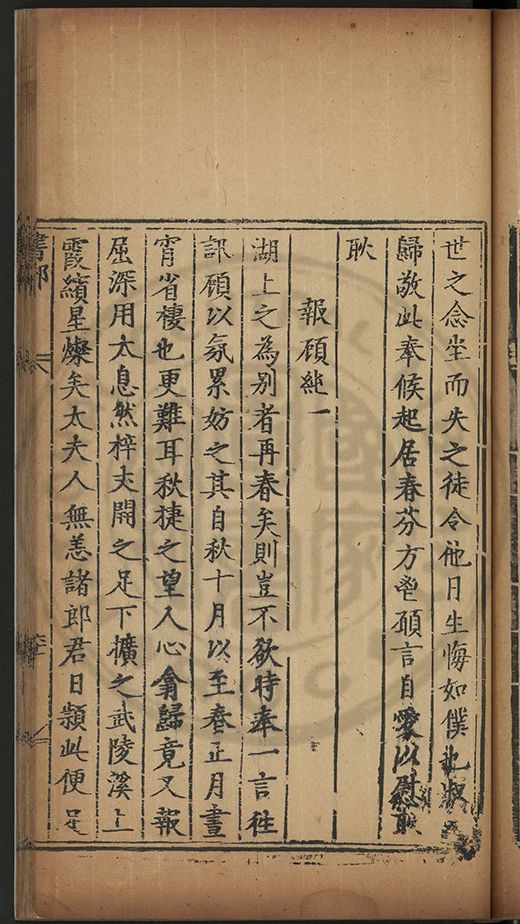 世之念坐而失之徒令他日生悔如僕也
歸敬此奉候起居春芬方鬯願言自愛以慰耿
耿
報顧純一
湖上之為別者再春矣則豈不欲時奉一言往
訊顧以氛累妨之其自秋十月以至春正月晝
宵省樓也更難耳秋捷之望人心龠歸竟又報
屈深用太息然梓夫開之足下擴之武陵溪上
霞繽星燦矣太夫人無恙諸郎君日纇此便足
書部